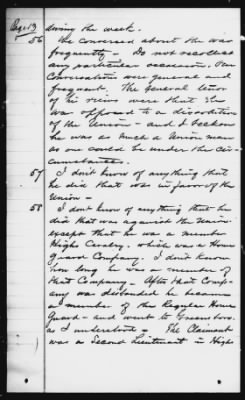 Page 13
during the week.
56 We conversed about the war
frequently - Do not recollect
any particular occasion. Our
Conversations were general and
frequent. The general tenor
of his views were that he
was opposed to a dissolution
of the Union - and I reckon
he was as much a Union man
as one could be under the cir-
cumstances.
57 I don't know of anything that
he did that was in favor of the
Union -
58 I don't know of anything that he
did that was against the Union
except that he was a member
Highs Cavalry, which was a Home
Guard Company. I don't know
how long he was a member of
that Company - After that Comp-
any was disbanded he became
a member of the Regular Home
Guard - and went to Greensboro.
as I understood - The Claimant
was a Second Lieutenant in Highs